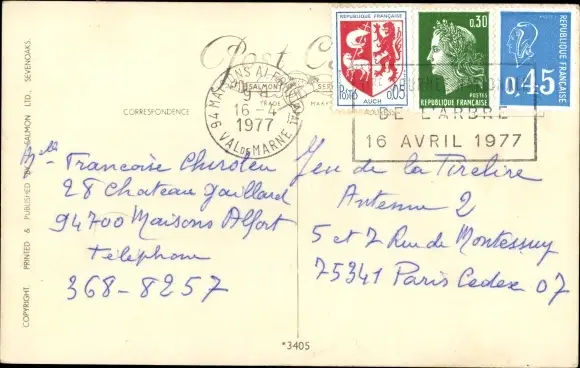 Post
CORRESPONDENCE
COPYRIGHT. PRINTED & PUBLISHED BY SALMON LTD., SEVENOAKS.
SALMON SERIES
TRADE MARK
94 MAISONS ALFORT
9H
16-4
1977
VAL DE MARNE
REPUBLIQUE FRANÇAISE
POSTES 0,05
AUCH
0,30
POSTES
REPUBLIQUE FRANÇAISE
POSTES
0,45
REPUBLIQUE FRANÇAISE
DE L'ARBRE
16 AVRIL 1977
Melle Francoise Chiroleu
28 Chateau Gaillard
94700 Maisons Alfort
téléphone
368-8257
Jeu de la Tirelire
Antenne 2
5 et 7 Rue de Montessuy
75341 Paris Cedex 07
*3405